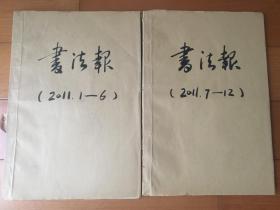 書法報
(2011.1—6)
書法報
(2011.7—12)